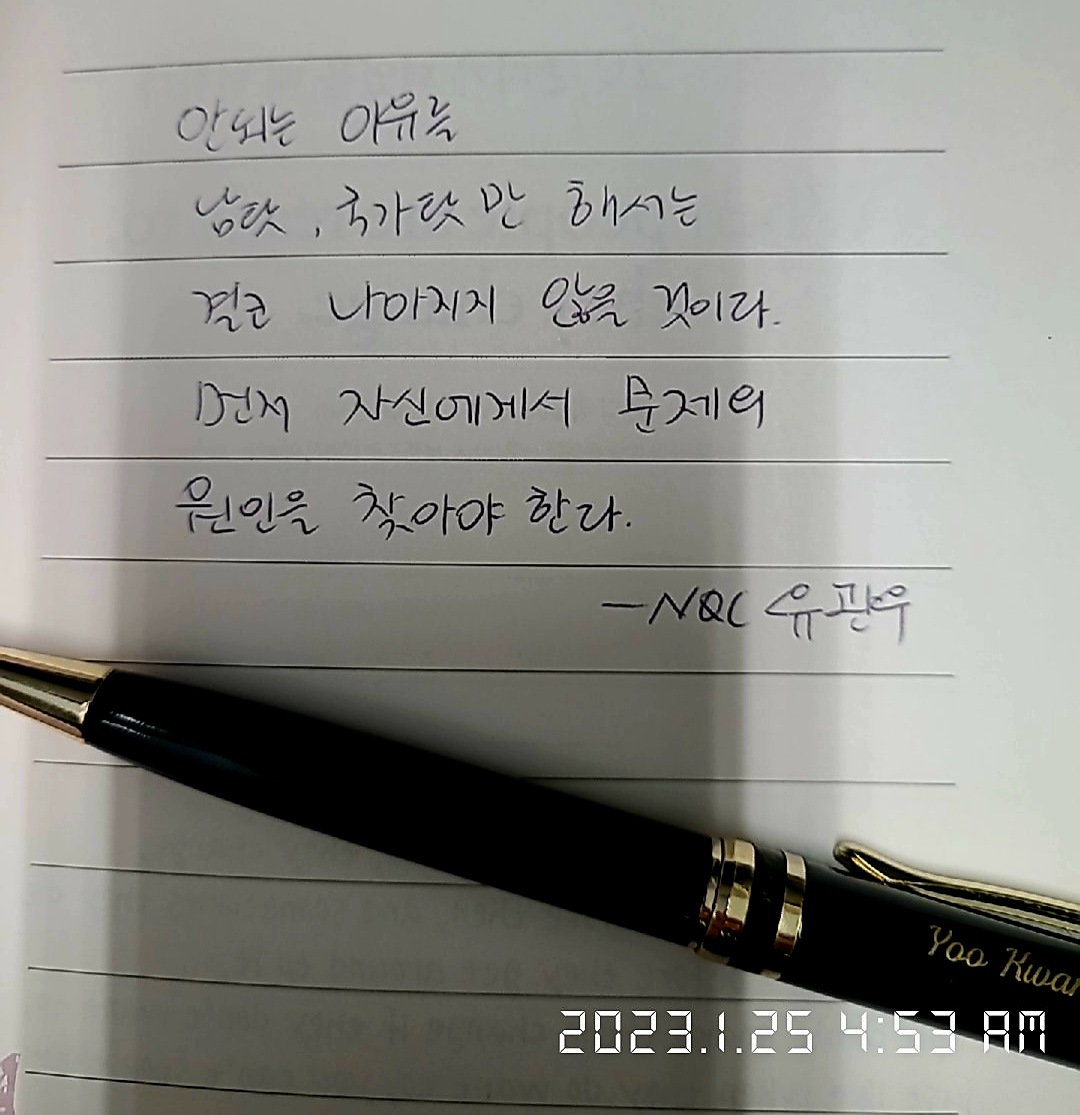 안되는 이유를
남탓, 국가탓만 해서는
결코 나아지지 않을 것이다.
먼저 자신에게서 문제의
원인을 찾아야 한다.
- NQC 유관우
Yoo Kwan
2023.1.25 4:53 AM